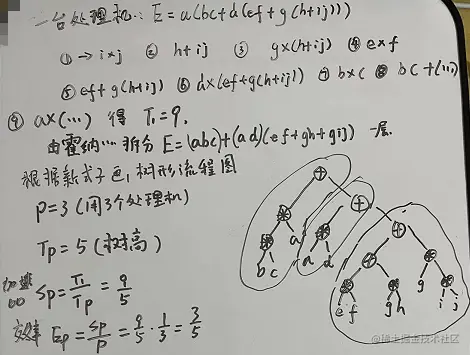 一台处理机: E=a(bc+d(ef+g(h+ij)))
① → i×j ② h+ij ③ g×(h+ij) ④ e×f
⑤ ef+g(h+ij) ⑥ d×(ef+g(h+ij)) ⑦ b×c ⑧ bc+(…)
⑨ a×(…) 得 T₁=9.
由霍纳… 拆分 E=(abc)+(ad)(ef+gh+gij) 一层.
根据新式子画树形流程图
P=3 (用3个处理机)
Tp=5 (树高)
加速 Sp=T₁/Tp=9/5
效率 Ep=Sp/P=9/5·1/3=3/5
+
* + +
* a * + *
b c a d * * g *
e f g h i j
@稀土掘金技术社区